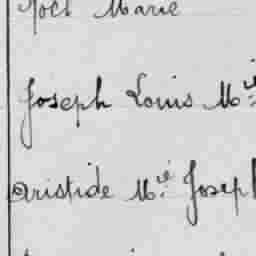 Noël Marie
Joseph Louis M.ie
Aristide M.ie Joseph